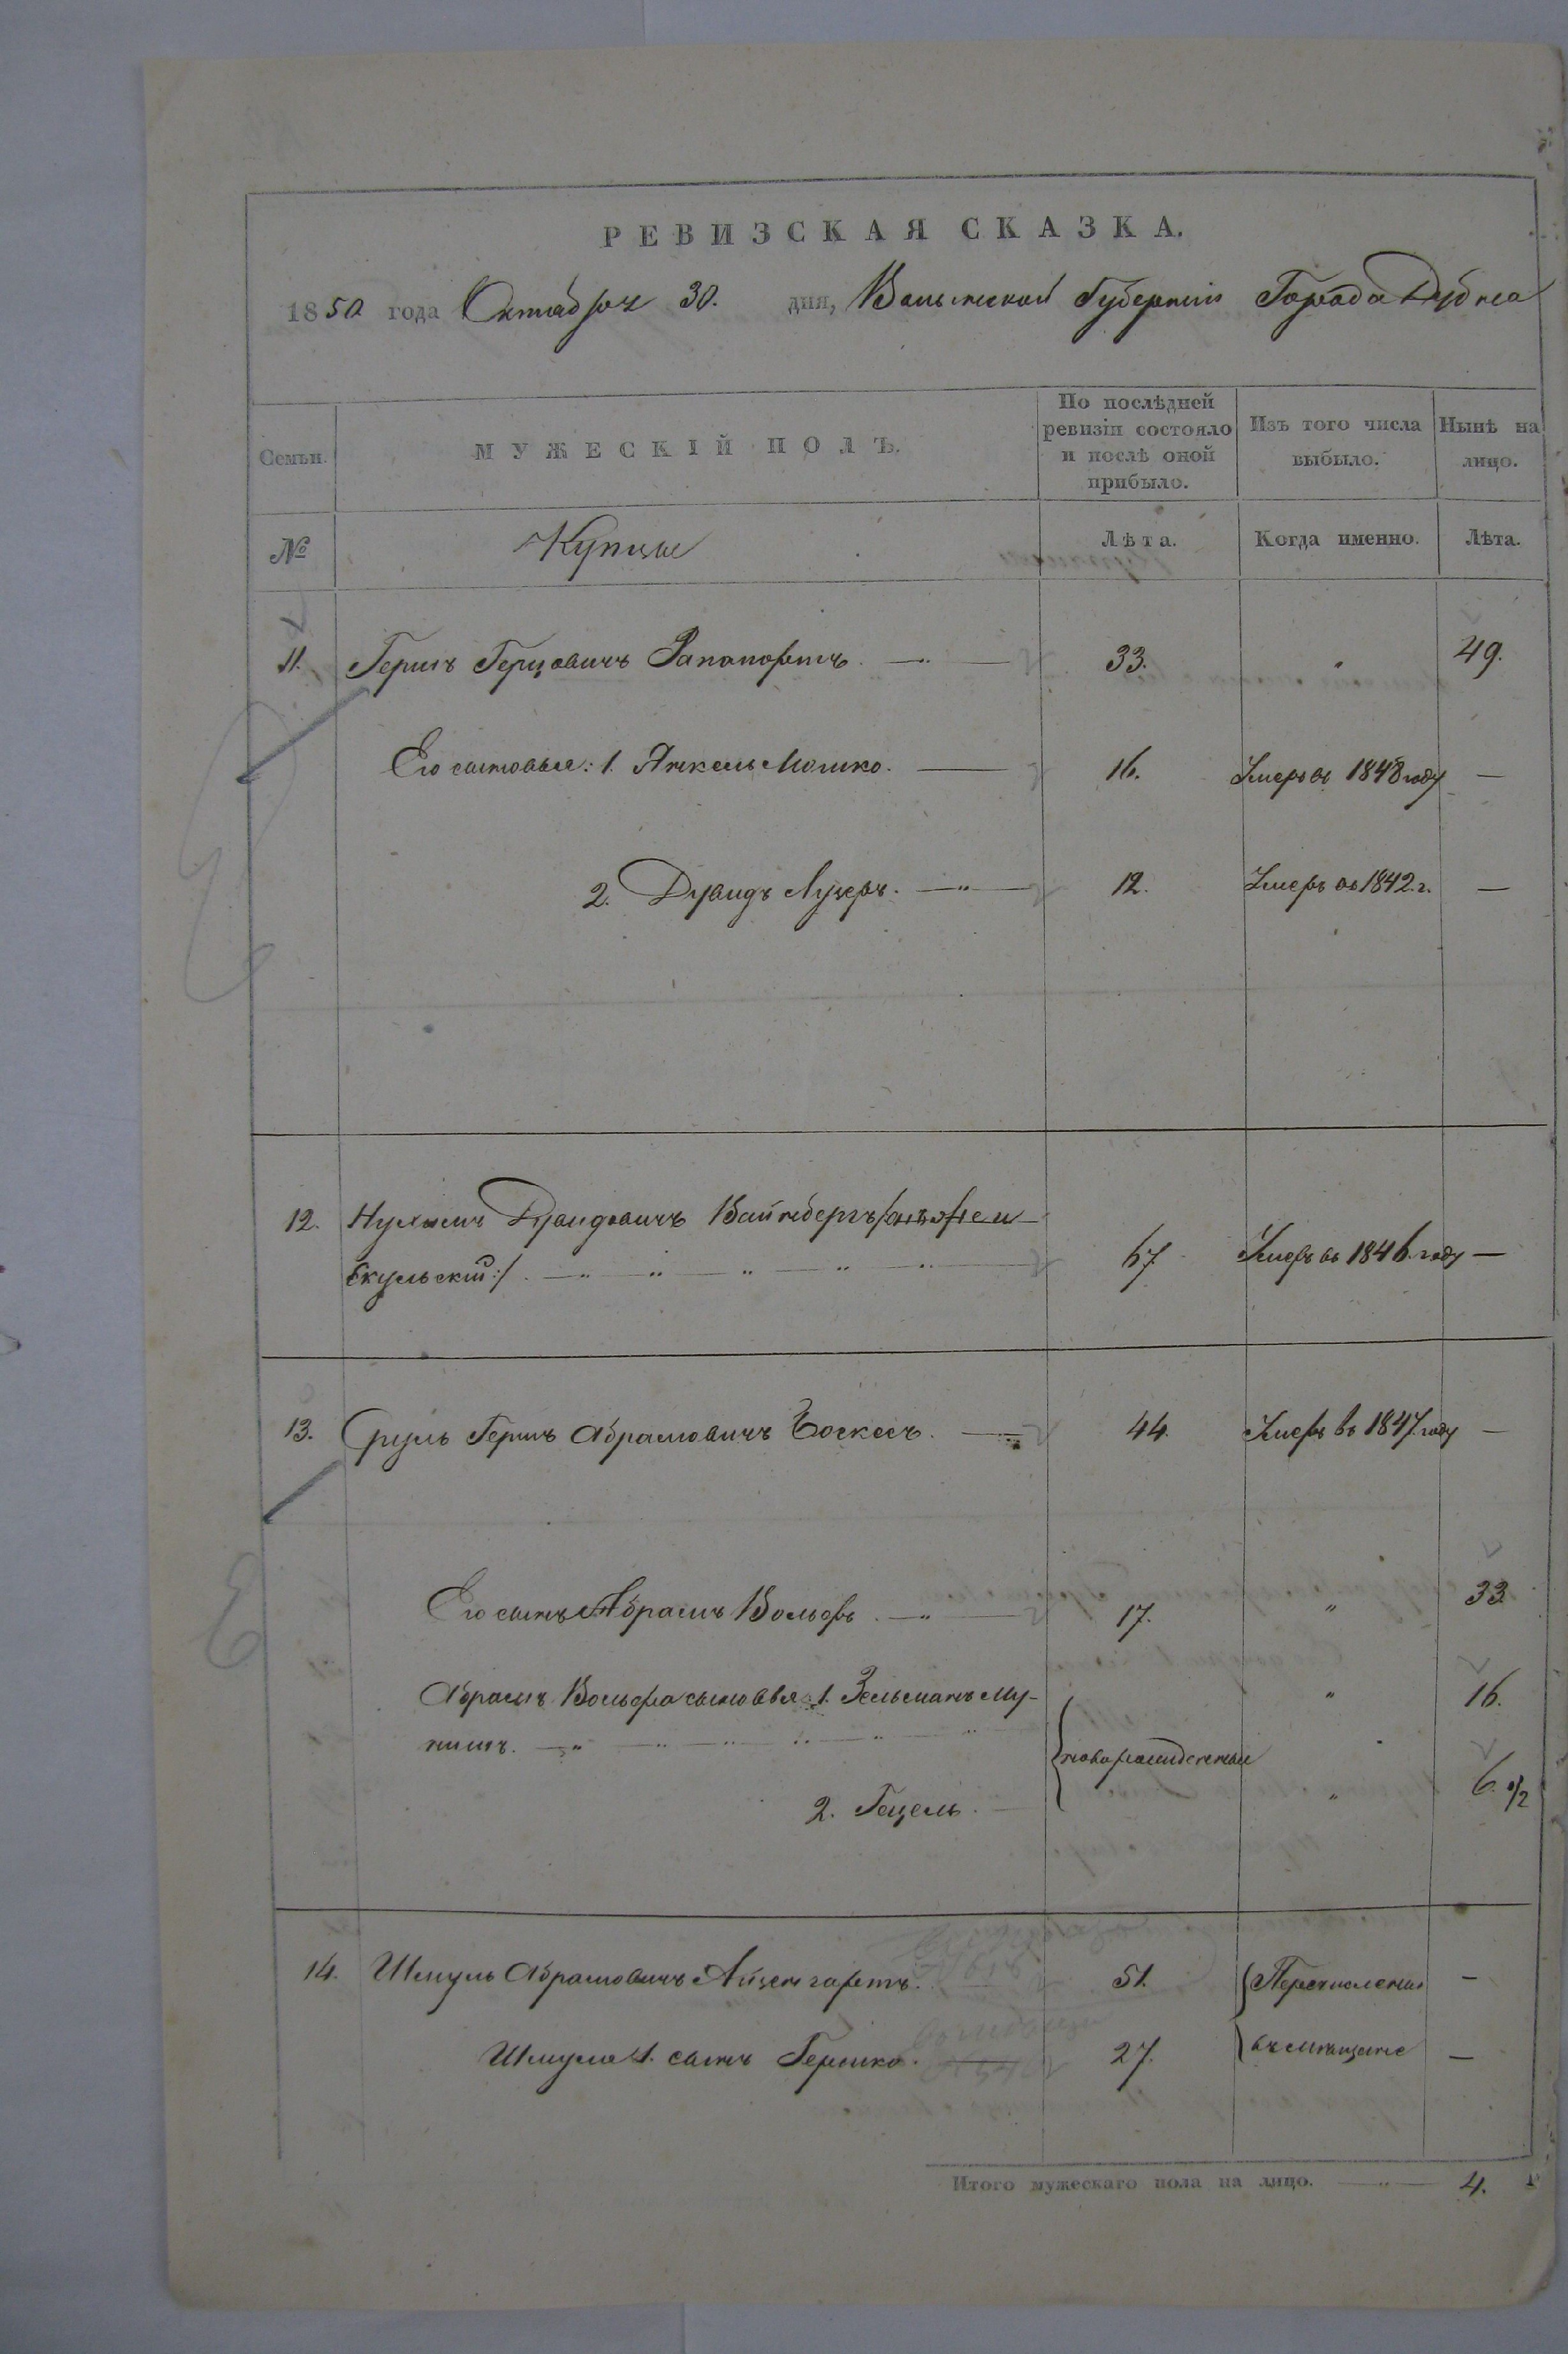 РЕВИЗСКАЯ СКАЗКА.
1850 года Октабря 30. дня, Волынской Губернии Города Дубна
Семьи. МУЖЕСКІЙ ПОЛЪ. По послѣдней ревизіи состояло и послѣ оной прибыло. Изъ того числа выбыло. Нынѣ на лицо.
№ Купцы Лѣта. Когда именно. Лѣта.
11. Гершъ Герцовичъ Рапапортъ. 33. " 49.
Его сыновья: 1. Янкель Мошко. 16. Умеръ въ 1848 году —
2. Дувидъ Лузеръ. 12. Умеръ въ 1842 г. —
12. Нухимъ Дувидовичъ Вайнбергъ
Скульскій :/. 67. Умеръ въ 1846. году —
13. Сруль Гершъ Абрамовичъ 44. Умеръ въ 1847. году —
Его сынъ Абрамъ Вольфъ. 17. " 33.
Абрамъ Вольфа сыновья: 1. Зельманъ Му- " 16.
нишъ. новорожденные
2. Гецель. " 6 1/2
14. Шмуль Абрамовичъ Айзенгартъ. 51. Перечислены —
Шмуля 1. сынъ Гершко. 27. въ мещане —
Итого мужескаго пола на лицо. 4.